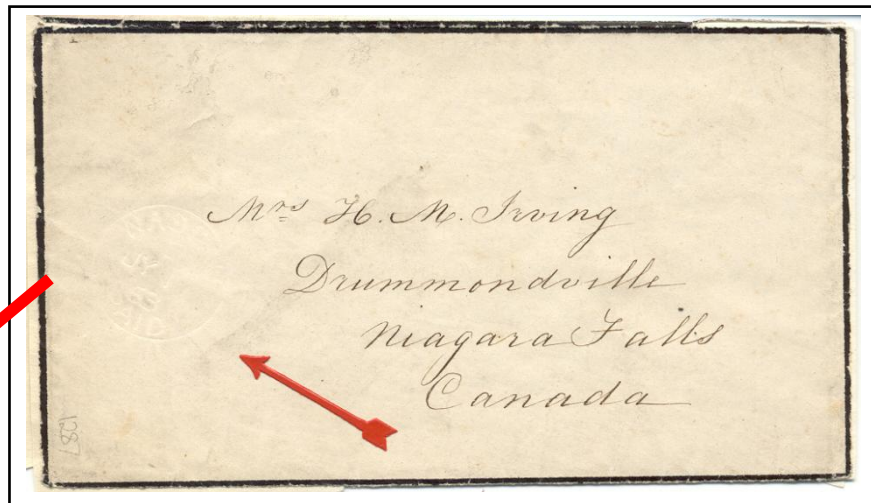 Mrs H. M. Irving
Drummondville
Niagara Falls
Canada
1287